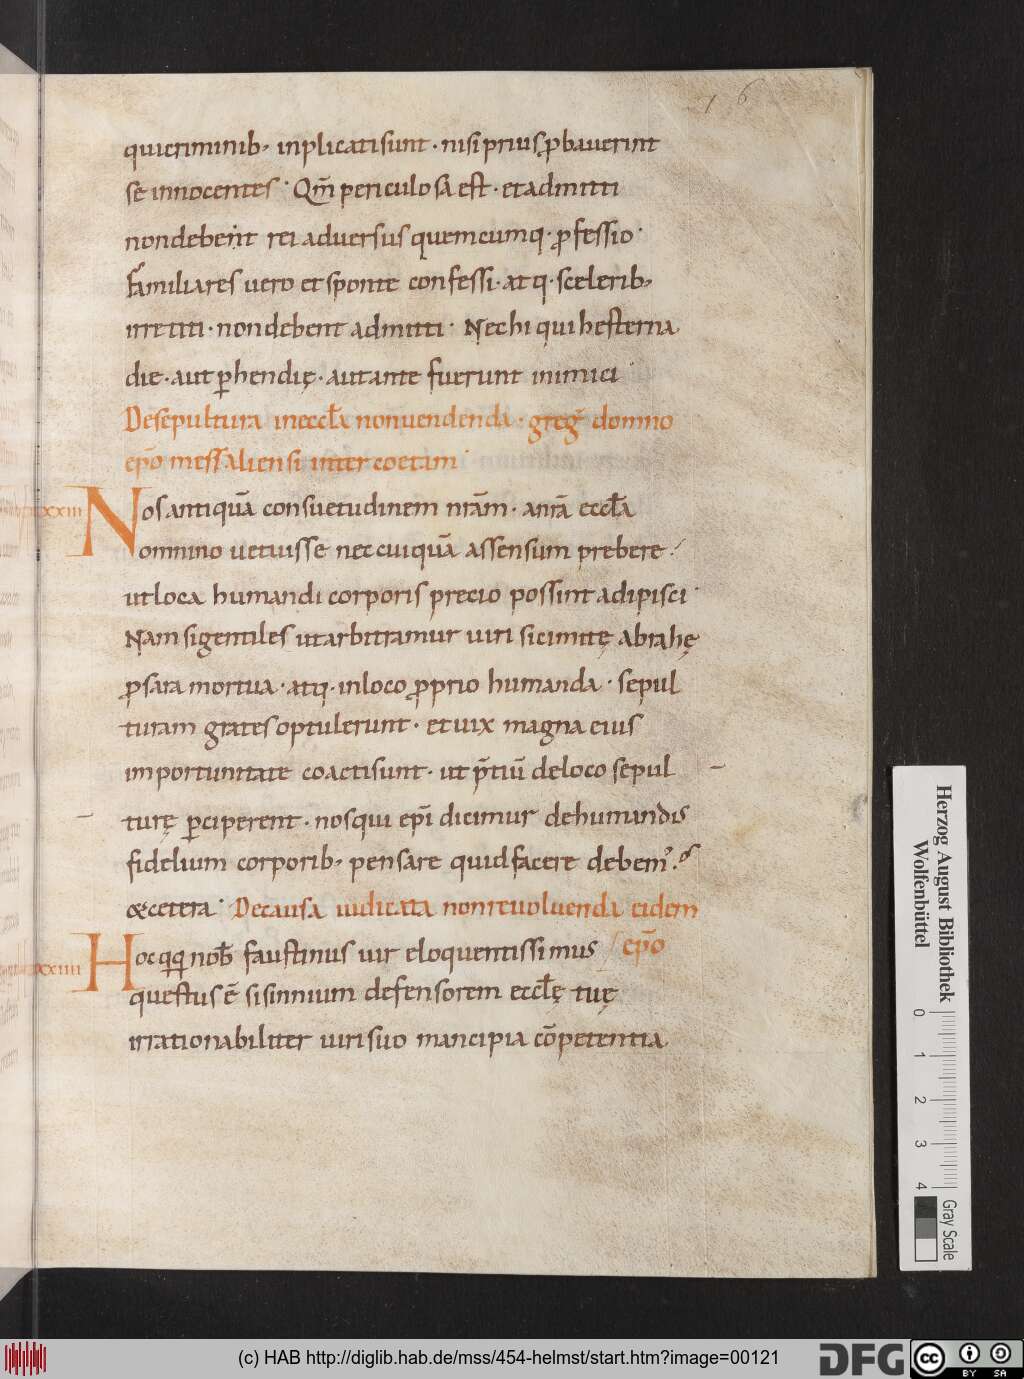 16
qui criminib; inplicati sunt · nisi prius ꝓbauerint
se innocentes · Qm̄ periculosa est · et admitti
non debent rei aduersus quemcumq · ꝓfessio ·
Familiares uero et sponte confessi · atq · scelerib;
irretiti · non debent admitti · Nec hi qui hesterna
die · aut ꝑhendię · aut ante fuerunt inimici
De sepultura in eccl̄a non uendenda · greg̃ domno
ep̄o messaliensi inter coetam ·
Nos antiquā consuetudinem nr̄am · a nr̄a eccl̄a
xxiii
omnino uetuisse nec cuiquā assensum prebere ·
ut loca humandi corporis precio possint adipisci ·
Nam si gentiles ut arbitramur uiri sicimitę abrahę
ꝓ sara mortua · atq · in loco ꝓprio humanda · sepul
turam grates optulerunt · et uix magna eius
importunitate coacti sunt · ut p̄tiū de loco sepul
turę ꝑciperent · nos qui ep̄i dicimur de humandis
fidelium corporib; pensare quid facere debem᾽ ·
&cetera · De causa iudicata non reuoluenda eidem
ep̄o
xxiiii
Hoc qq nob̄ faustinus uir eloquentissimus
questus ē sisinnium defensorem eccl̄ę tuę
irrationabiliter uiri suo mancipia cōpetentia
Herzog August Bibliothek
Wolfenbüttel
0 1 2 3 4
Gray Scale
(c) HAB http://diglib.hab.de/mss/454-helmst/start.htm?image=00121
DFG
cc BY SA